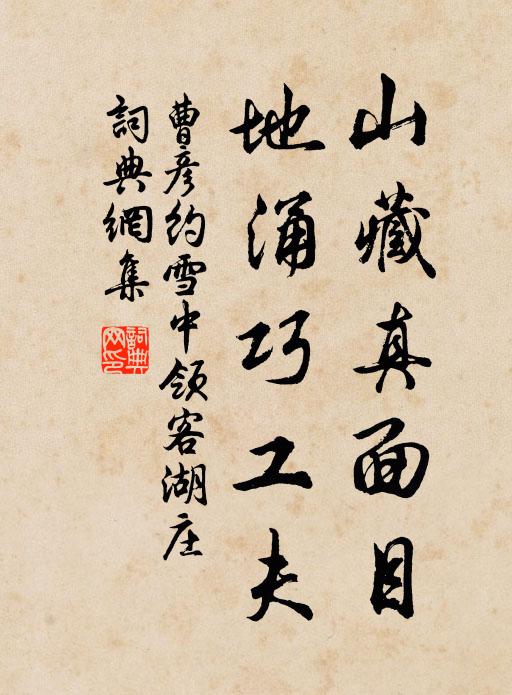 山藏真面目
地涌巧工夫
曹彦約雪中領客湖庄
詞典網集
詞典
网印